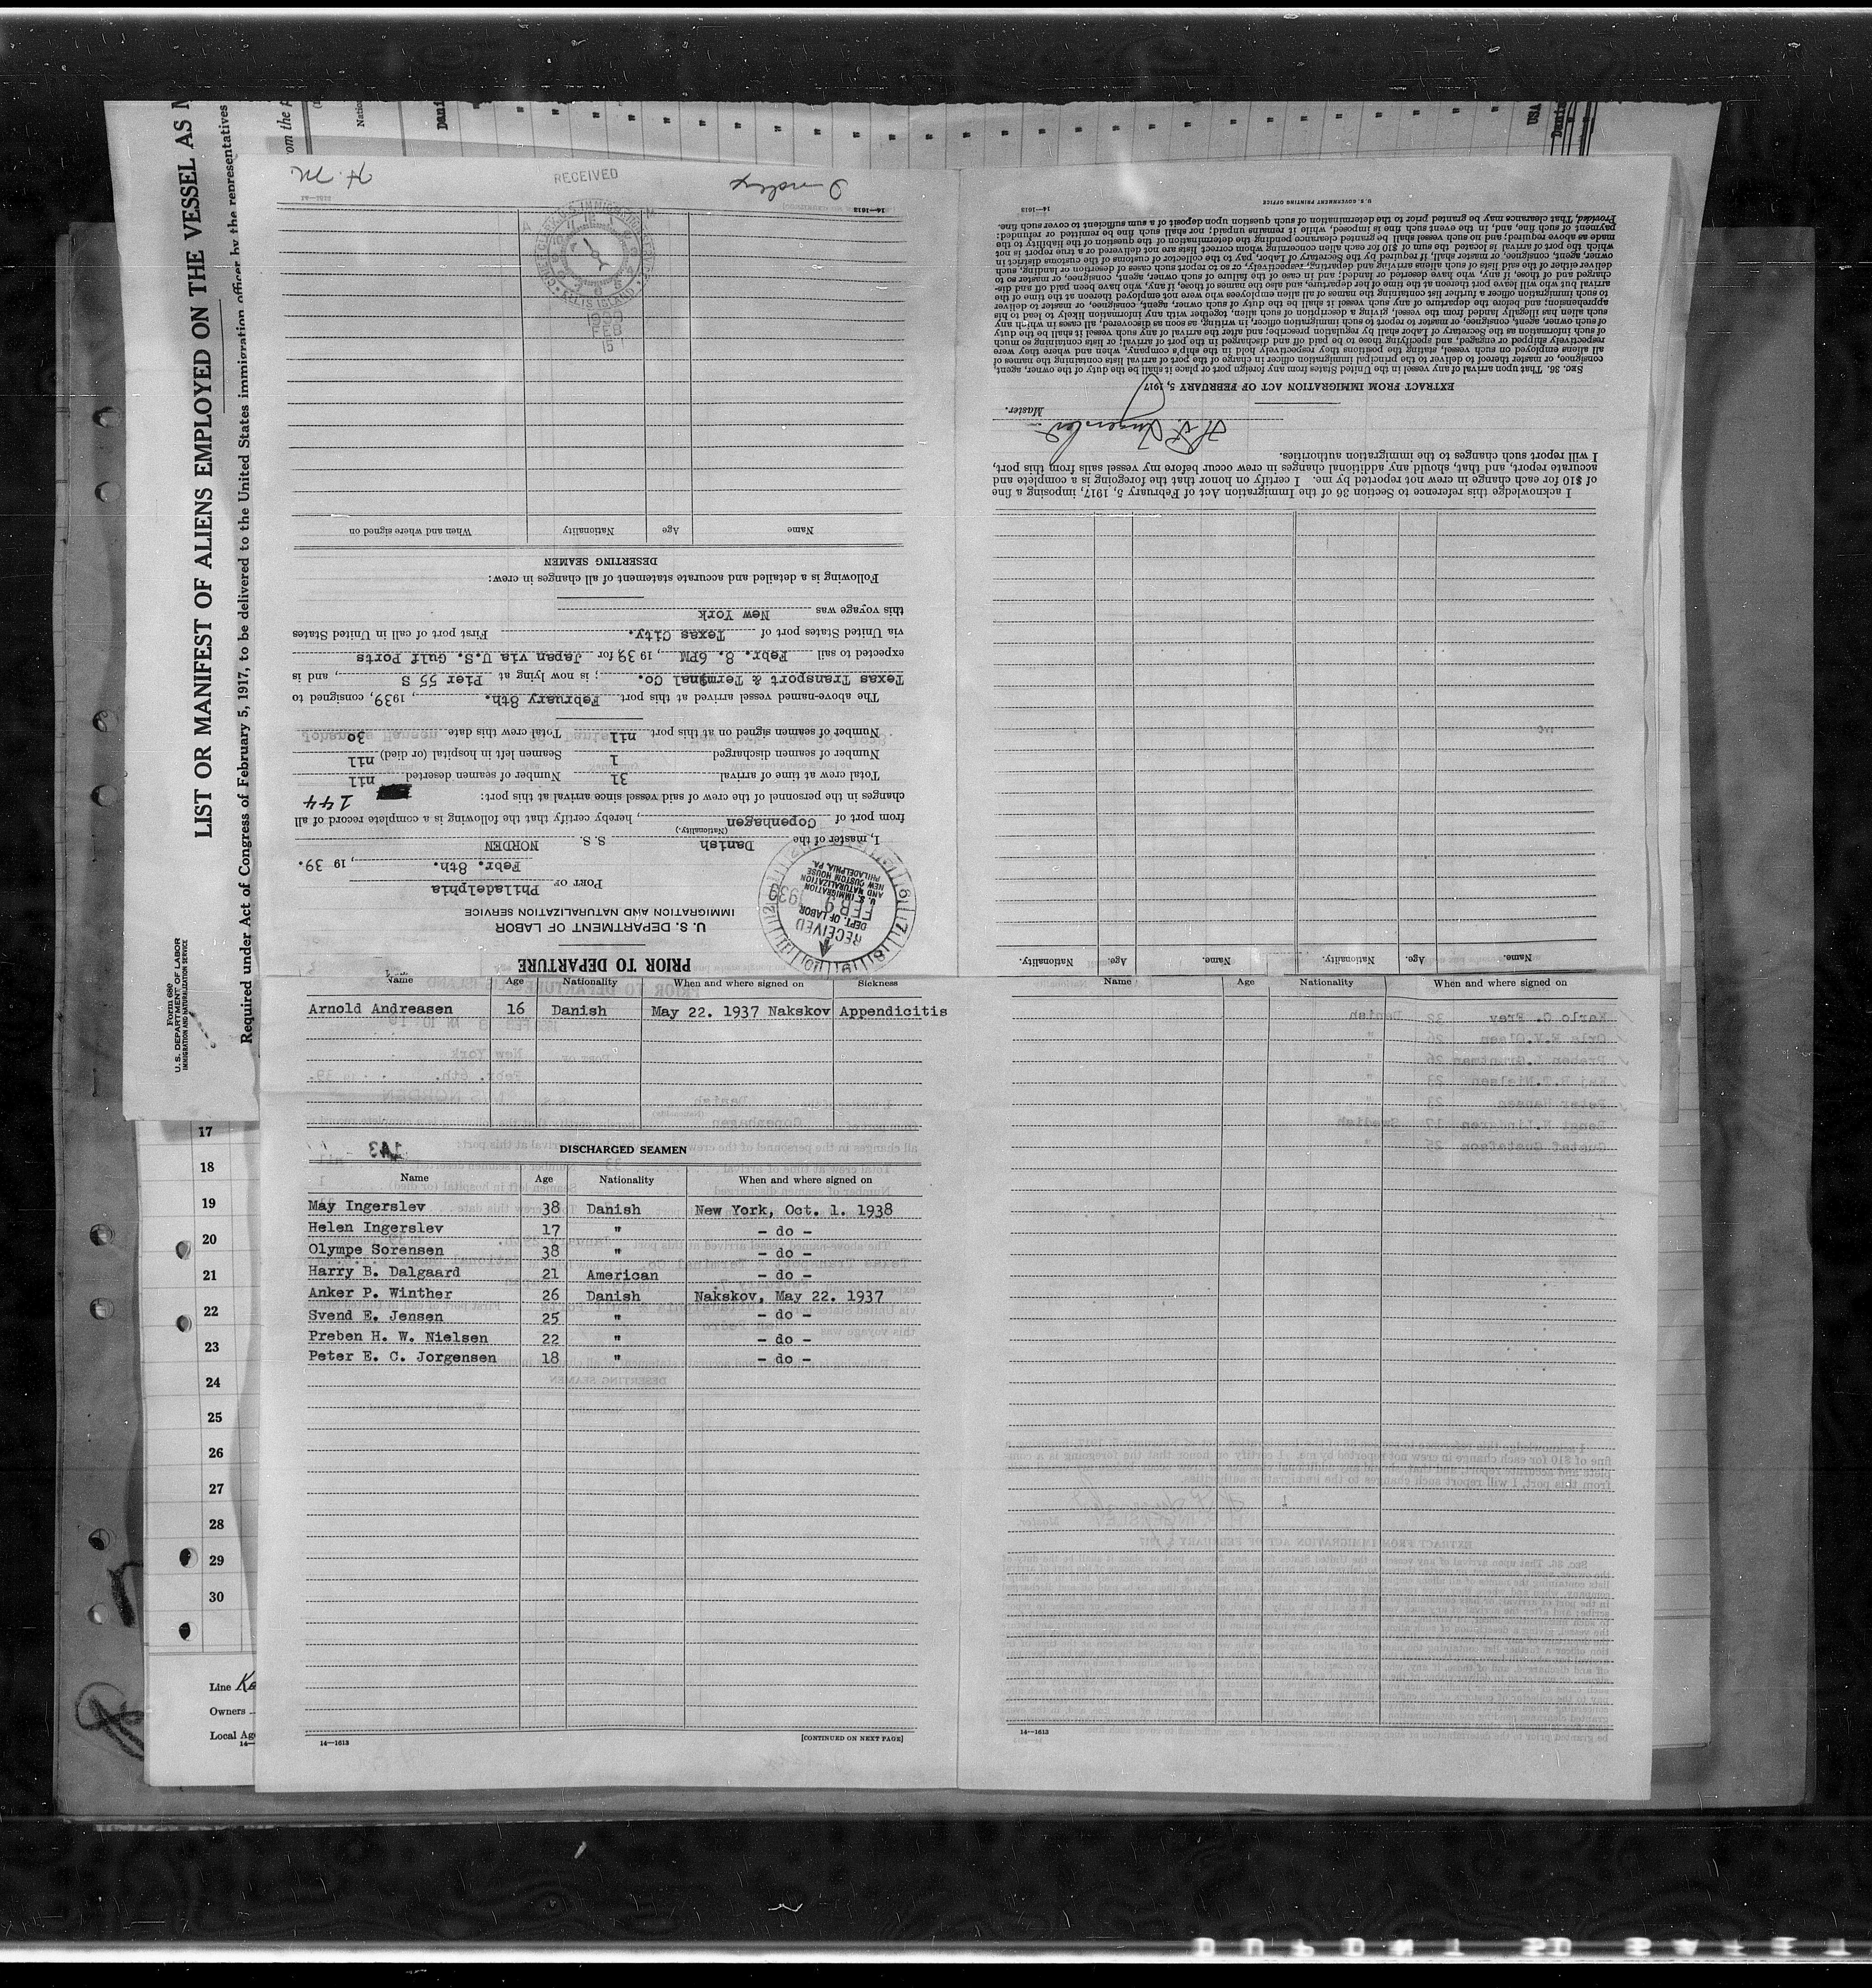 LIST OR MANIFEST OF ALIENS EMPLOYED ON THE VESSEL AS
Required under Act of Congress of February 5, 1917, to be delivered to the United States immigration officer by the representatives
Form 680
U.S. DEPARTMENT OF LABOR
IMMIGRATION AND NATURALIZATION SERVICE
PRIOR TO DEPARTURE
U. S. DEPARTMENT OF LABOR
IMMIGRATION AND NATURALIZATION SERVICE
RECEIVED
DEPT. OF LABOR
FEB 9 1939
U. S. IMMIGRATION
AND NATURALIZATION
NEW CUSTOM HOUSE
PHILADELPHIA, PA.
PORT OF Philadelphia
Febr. 8th. , 19 39.
I, master of the Danish S. S. NORDEN
(Nationality.)
from port of Copenhagen , hereby certify that the following is a complete record of all
changes in the personnel of the crew of said vessel since arrival at this port: 144
Total crew at time of arrival 31 Number of seamen deserted nil
Number of seamen discharged 1 Seamen left in hospital (or died) nil
Number of seamen signed on at this port nil Total crew this date 30
The above-named vessel arrived at this port February 8th. , 1939, consigned to
Texas Transport & Terminal Co. ; is now lying at Pier 55 S , and is
expected to sail Febr. 8. 6PM , 19 39, for Japan via U.S. Gulf Ports
via United States port of Texas City. First port of call in United States
this voyage was New York
Following is a detailed and accurate statement of all changes in crew:
DESERTING SEAMEN
Name Age Nationality When and where signed on
14—1613
RECEIVED
ELLIS ISLAND
1939
FEB
15
Name. Age. Nationality. Name. Age. Nationality.
I acknowledge this reference to Section 36 of the Immigration Act of February 5, 1917, imposing a fine
of $10 for each change in crew not reported by me. I certify on honor that the foregoing is a complete and
accurate report, and that, should any additional changes in crew occur before my vessel sails from this port,
I will report such changes to the immigration authorities.
Master.
EXTRACT FROM IMMIGRATION ACT OF FEBRUARY 5, 1917
SEC. 36. That upon arrival of any vessel in the United States from any foreign port or place it shall be the duty of the owner, agent,
consignee, or master thereof to deliver to the principal immigration officer in charge of the port of arrival lists containing the names of
all aliens employed on such vessel, stating the positions they respectively hold in the ship's company, when and where they were
respectively shipped or engaged, and specifying those to be paid off and discharged in the port of arrival; or lists containing so much
of such information as the Secretary of Labor shall by regulation prescribe; and after the arrival of any such vessel it shall be the duty
of such owner, agent, consignee, or master to report to such immigration officer, in writing, as soon as discovered, all cases in which any
such alien has illegally landed from the vessel, giving a description of such alien, together with any information likely to lead to his
apprehension; and before the departure of any such vessel it shall be the duty of such owner, agent, consignee, or master to deliver
to such immigration officer a further list containing the names of all alien employees who were not employed thereon at the time of the
arrival but who will leave port thereon at the time of her departure, and also the names of those, if any, who have been paid off and dis-
charged and of those, if any, who have deserted or landed; and in case of the failure of such owner, agent, consignee, or master so to
deliver either of the said lists of such aliens arriving and departing, respectively, or so to report such cases of desertion or landing, such
owner, agent, consignee, or master, shall, if required by the Secretary of Labor, pay to the collector of customs of the customs district in
which the port of arrival is located the sum of $10 for each alien concerning whom correct lists are not delivered or a true report is not
made as above required; and no such vessel shall be granted clearance pending the determination of the question of the liability to the
payment of such fine, and, in the event such fine is imposed, while it remains unpaid; nor shall such fine be remitted or refunded:
Provided, That clearance may be granted prior to the determination of such question upon deposit of a sum sufficient to cover such fine.
U. S. GOVERNMENT PRINTING OFFICE 14—1613
Name Age Nationality When and where signed on Sickness
Arnold Andreasen 16 Danish May 22. 1937 Nakskov Appendicitis
143
DISCHARGED SEAMEN
Name Age Nationality When and where signed on
May Ingerslev 38 Danish New York, Oct. 1. 1938
Helen Ingerslev 17 " - do -
Olympe Sorensen 38 " - do -
Harry B. Dalgaard 21 American - do -
Anker P. Winther 26 Danish Nakskov, May 22. 1937
Svend E. Jensen 25 " - do -
Preben H. W. Nielsen 22 " - do -
Peter E. C. Jorgensen 18 " - do -
14—1613 [CONTINUED ON NEXT PAGE]
Name Age Nationality When and where signed on
14—1613
17
18
19
20
21
22
23
24
25
26
27
28
29
30
Line
Owners
Local